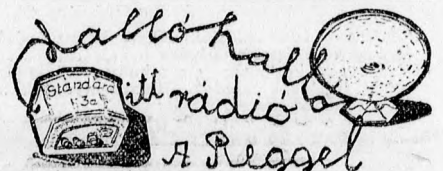 Halló halló
itt rádió
A Reggel
Standard